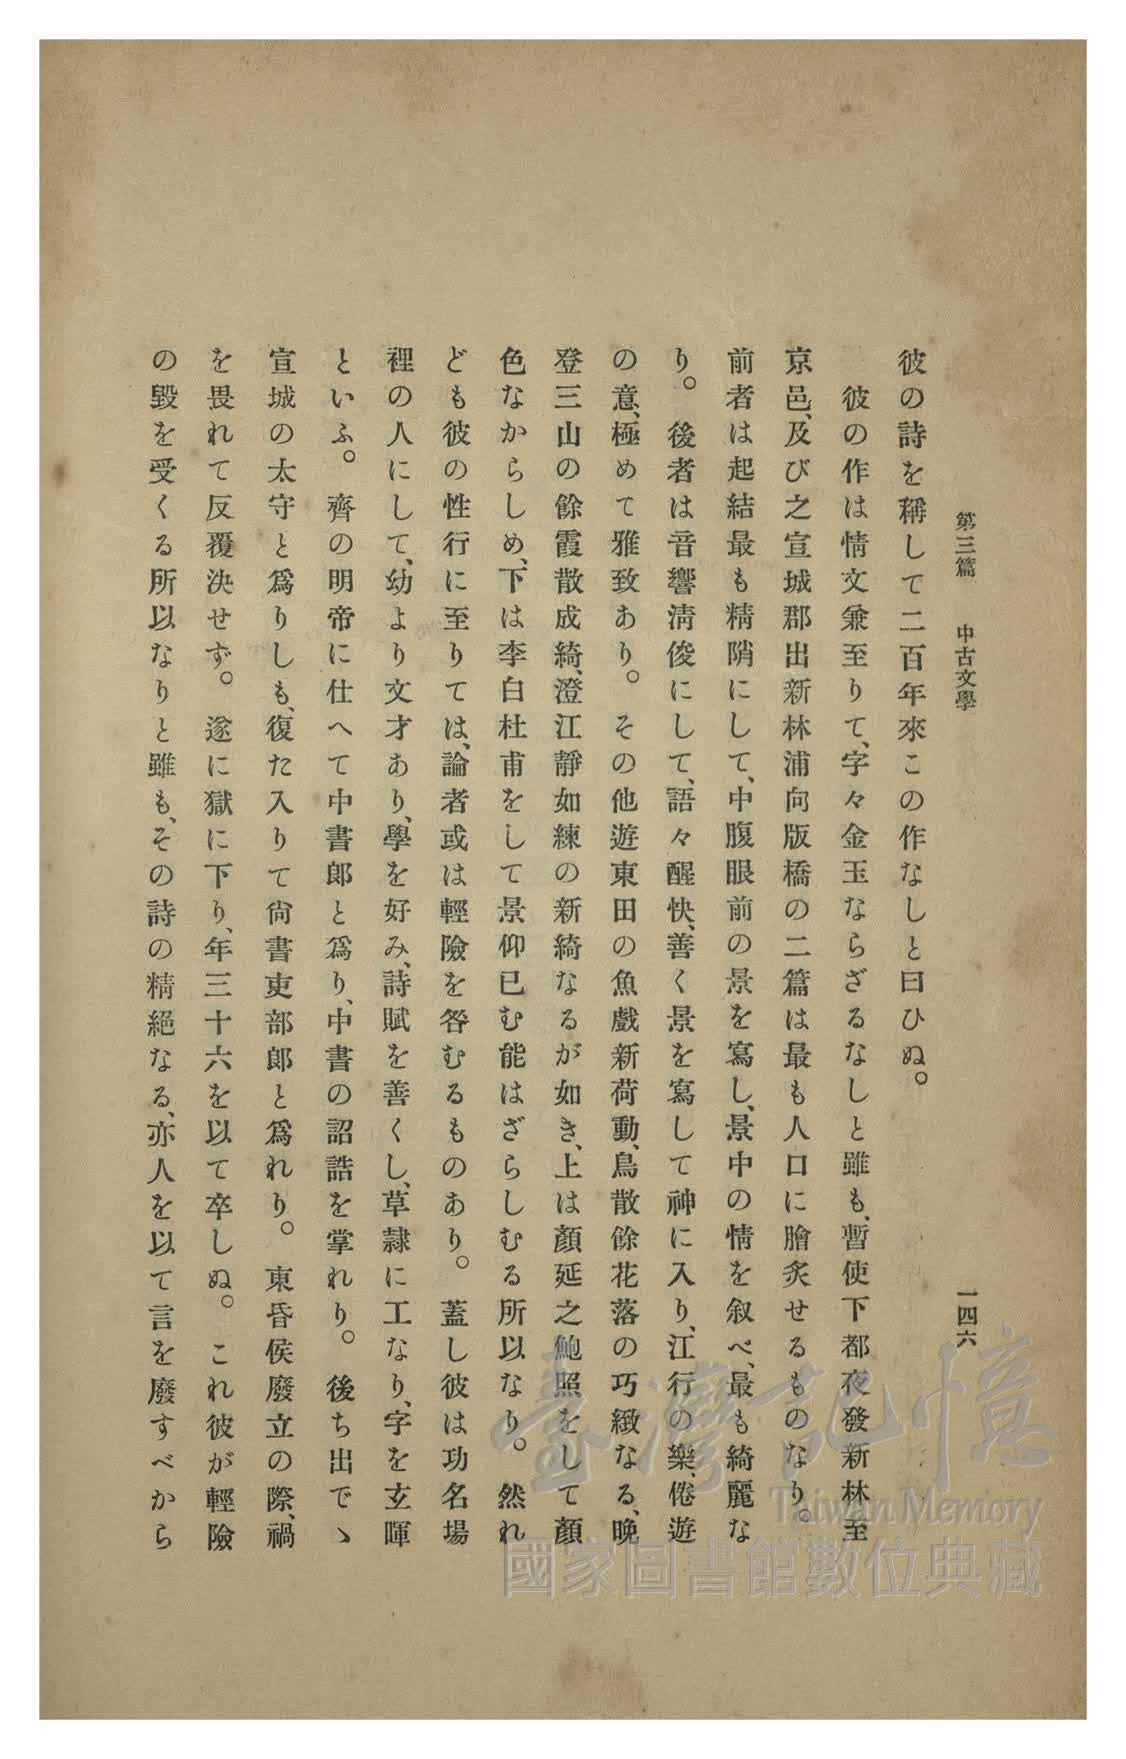 第三篇　中古文學　一四六
彼の詩を稱して二百年來この作なしと曰ひぬ。
彼の作は情文兼至りて、字々金玉ならざるなしと雖も、暫使下都夜發新林至
京邑、及び之宣城郡出新林浦向版橋の二篇は最も人口に膾炙せるものなり。
前者は起結最も精陗にして、中腹眼前の景を寫し、景中の情を叙べ、最も綺麗な
り。後者は音響淸俊にして、語々醒快、善く景を寫して神に入り、江行の樂、倦遊
の意、極めて雅致あり。その他遊東田の魚戲新荷動、鳥散餘花落の巧緻なる、晩
登三山の餘霞散成綺、澄江靜如練の新綺なるが如き、上は顏延之鮑照をして顏
色なからしめ、下は李白杜甫をして景仰已む能はざらしむる所以なり。然れ
ども彼の性行に至りては、論者或は輕險を咎むるものあり。蓋し彼は功名場
裡の人にして、幼より文才あり、學を好み、詩賦を善くし、草隷に工なり、字を玄暉
といふ。齊の明帝に仕へて中書郞と爲り、中書の詔誥を掌れり。後ち出でゝ
宣城の太守と爲りしも、復た入りて尙書吏部郞と爲れり。東昏侯廢立の際、禍
を畏れて反覆決せず。遂に獄に下り、年三十六を以て卒しぬ。これ彼が輕險
の毀を受くる所以なりと雖も、その詩の精絕なる、亦人を以て言を廢すべから
臺灣記憶
Taiwan Memory
國家圖書館數位典藏